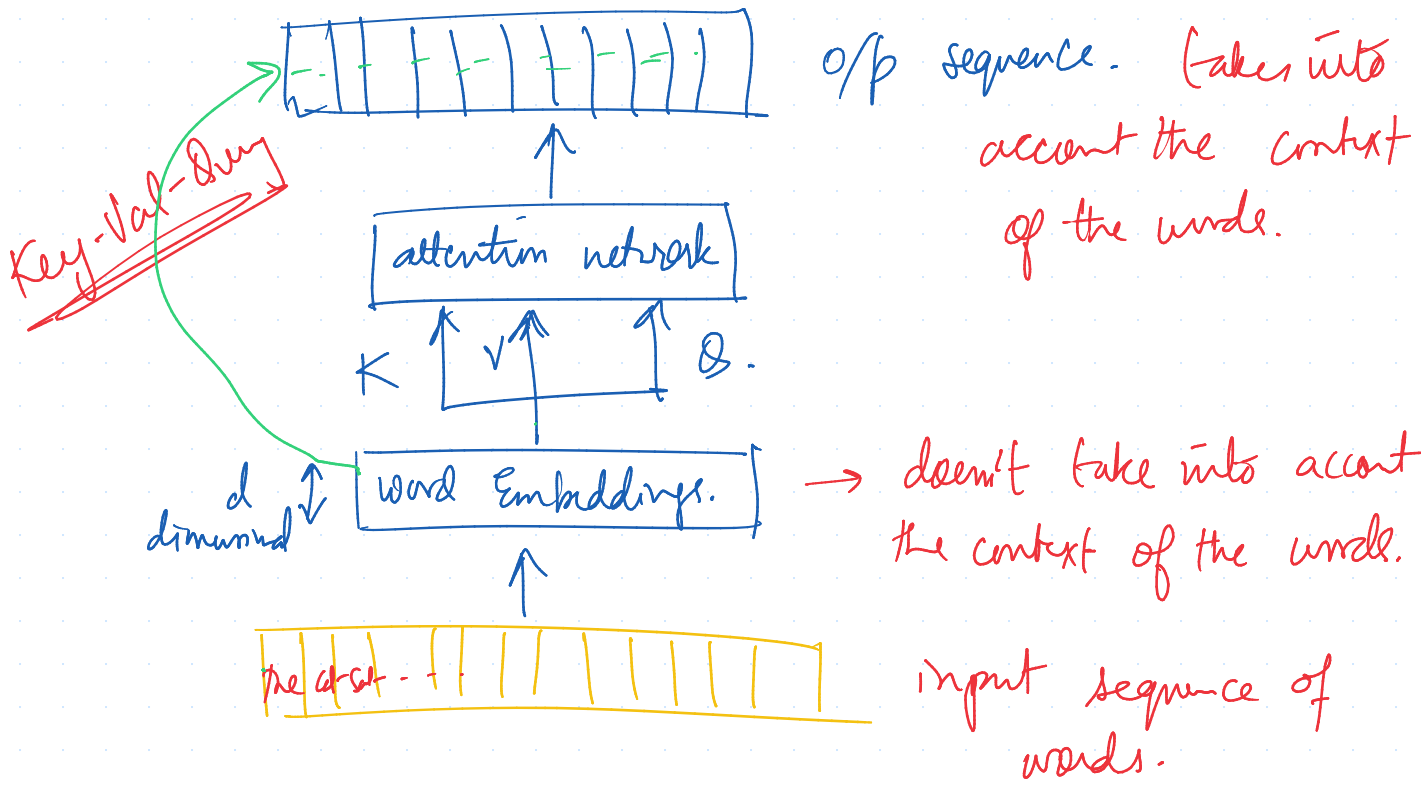 o/p sequence. (takes into
account the context
of the words.
Key-Val-Query
attention network
K V Q.
d
dimensional
word Embeddings.
→ doesn't take into account
the context of the words.
the cat sat - - - .
input sequence of
words.